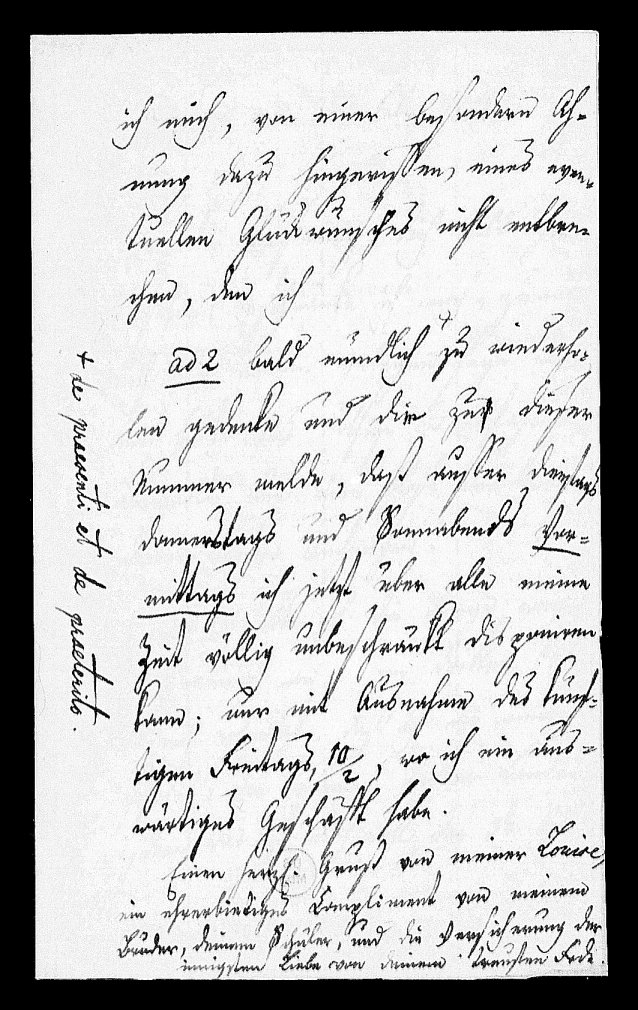 ich mich, von einer besondern Ah-
nung dazu hingerissen, eines even-
tuellen Glückwunsches nicht entbre-
chen, den ich
ad 2 bald mündlich + zu wiederho-
len gedenke und dir zu dieser
Nummer melde, daß ausser dienstags
donnerstags und Sonnabends Vor-
mittags ich jetzt über alle meine
Zeit völlig unbeschränkt disponiren
kann; nur mit Ausnahme des künf-
tigen Freitags, 10/2, wo ich ein aus-
wärtiges Geschäft habe.
Einen herzl. Gruß von meiner Louise,
ein ehrerbietiges Compliment von meinem
Bruder, deinem Schüler, und die Versicherung der
innigsten Liebe von deinem treusten
+ de praesenti et de praeterito.